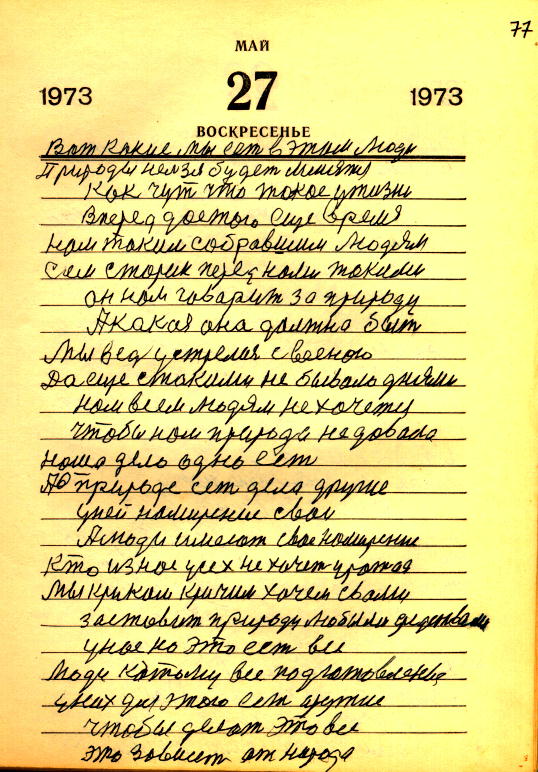 77
МАЙ
1973 27 1973
ВОСКРЕСЕНЬЕ
Вот какие мы сет в этом люди
Природы нелзя будет менят
Как чут что такое ужизни
Вперед доетого еще время
нам таким собравшим людям
Сам старик перед нами такими
он нам говарит за природу
А какая она должна быт
Мы вед устрелия своеною
Да еще стакими не бывало днями
нам всем людям не хочету
чтобы нам природа недовала
наша дело одно сет
А о природе сет дела другие
уней намирение свои
А люди имеют свое намирение
Кто из нас усех не хочет урожая
Мы криком кричим хочем свами
заставит природу любыми
унас на это ест все
люди кэтому все подготовление
уних для этого сет другие
чтобы делат это все
это зависет от народа